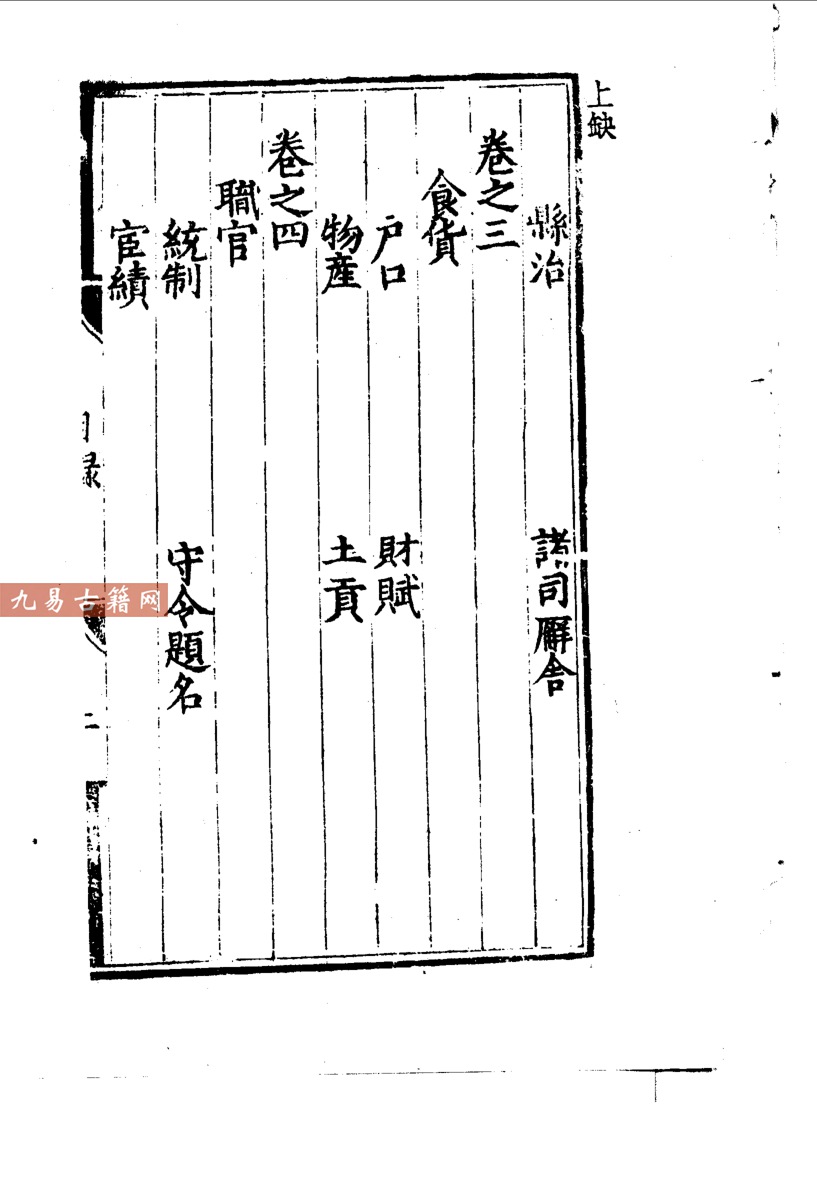 上缺
縣治 諸司廨舍
卷之三
食貨
户口 財賦
物産 土貢
卷之四
職官
統制 守令題名
宦績
目録
二
九易古籍网